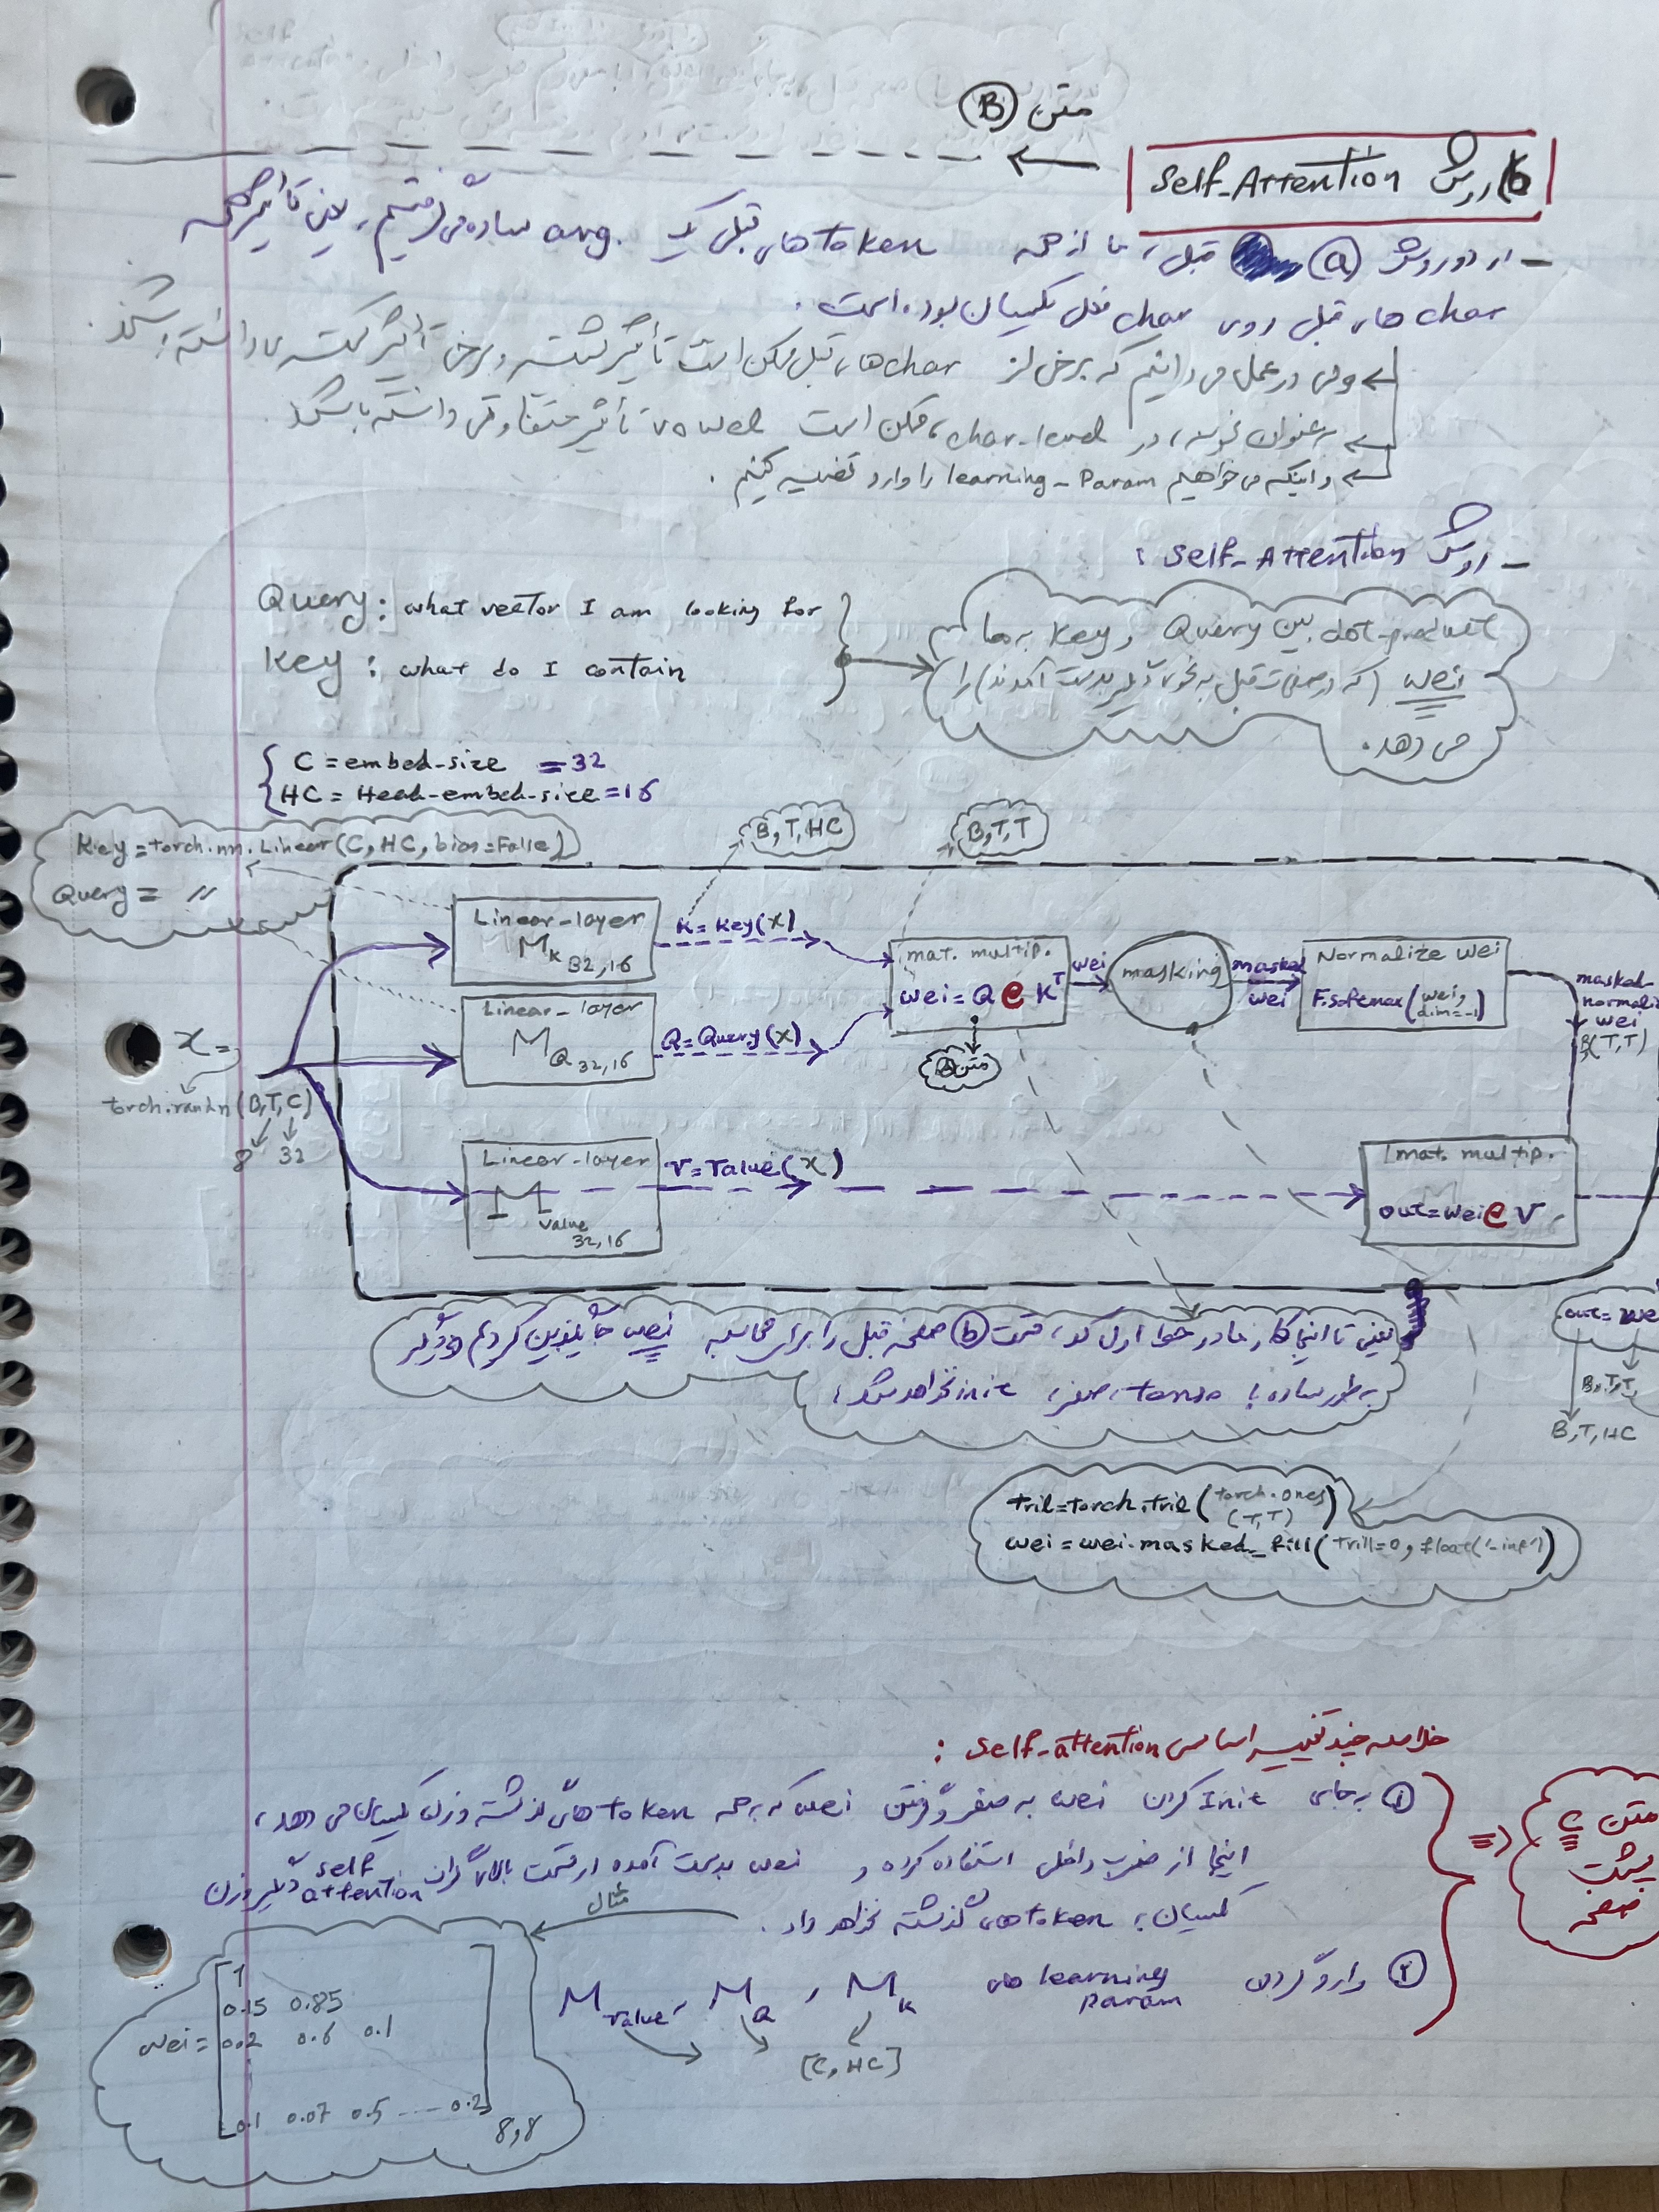 متن B
b) روش Self-Attention
- در دو روش a قبل، ما از همه token های قبلی یک avg. ساده می‌گرفتیم، یعنی تاثیر همه
char های قبل روی char فعلی یکسان بوده است.
ولی در عمل می دانیم که برخی از char های قبل ممکن است تأثیر بیشتر و برخی تأثیر کمتری داشته باشند.
به عنوان نمونه، در char-level، ممکن است vowel تأثیر متفاوتی داشته باشد.
و اینکه می خواهیم learning-Param را وارد قضیه کنیم.
- روش Self-Attention :
Query: what vector I am looking for
Key: what do I contain
dot-product بین Query و Key به ما
wei (که در صفحات قبل به نحو دیگر بدست آمدند) را
می دهد.
C = embed-size = 32
HC = Head-embed-size = 16
Key = torch.nn.Linear(C, HC, bias=False)
Query = 〃
B,T,HC
B,T,T
Linear-layer
M K 32,16
K = Key(x)
Linear-layer
M Q 32,16
Q = Query(x)
mat. multip.
wei = Q @ K^T
متن
wei
masking
masked wei
Normalize wei
F.softmax(wei, dim=-1)
masked-
wei
B(T,T)
x =
torch.randn(B,T,C)
8 32
Linear-layer
M value 32,16
V = Value(x)
mat. multip.
out = wei @ V
یعنی تا اینجا کار ما در خط اول کد، قسمت b صفحه قبل را برای محاسبه wei جایگزین کردیم و دیگر
به طور ساده با tensor صفر، init نخواهد شد،
B,T,T
B,T,HC
tril = torch.tril(torch.ones (T,T))
wei = wei.masked_fill(trill=0, float('-inf'))
خلاصه چند تغییر اساسی Self-attention :
① به جای Init کردن wei به صفر و گرفتن wei که به همه token های گذشته وزن یکسان می دهد،
اینجا از ضرب داخلی استفاده کرده و wei بدست آمده از قسمت بالا self attention دیگر وزن
یکسان به token های گذشته نخواهد داد.
مثال
② وارد کردن learning param های M K , M Q , M Value
[C, HC]
متن
پشت
صفحه
wei =
1
0.15 0.85
0.2 0.6 0.1
0.1 0.07 0.5 --- 0.2
8,8